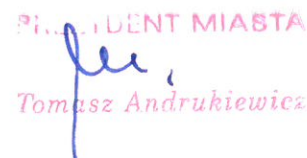 PREZYDENT MIASTA
Tomasz Andrukiewicz